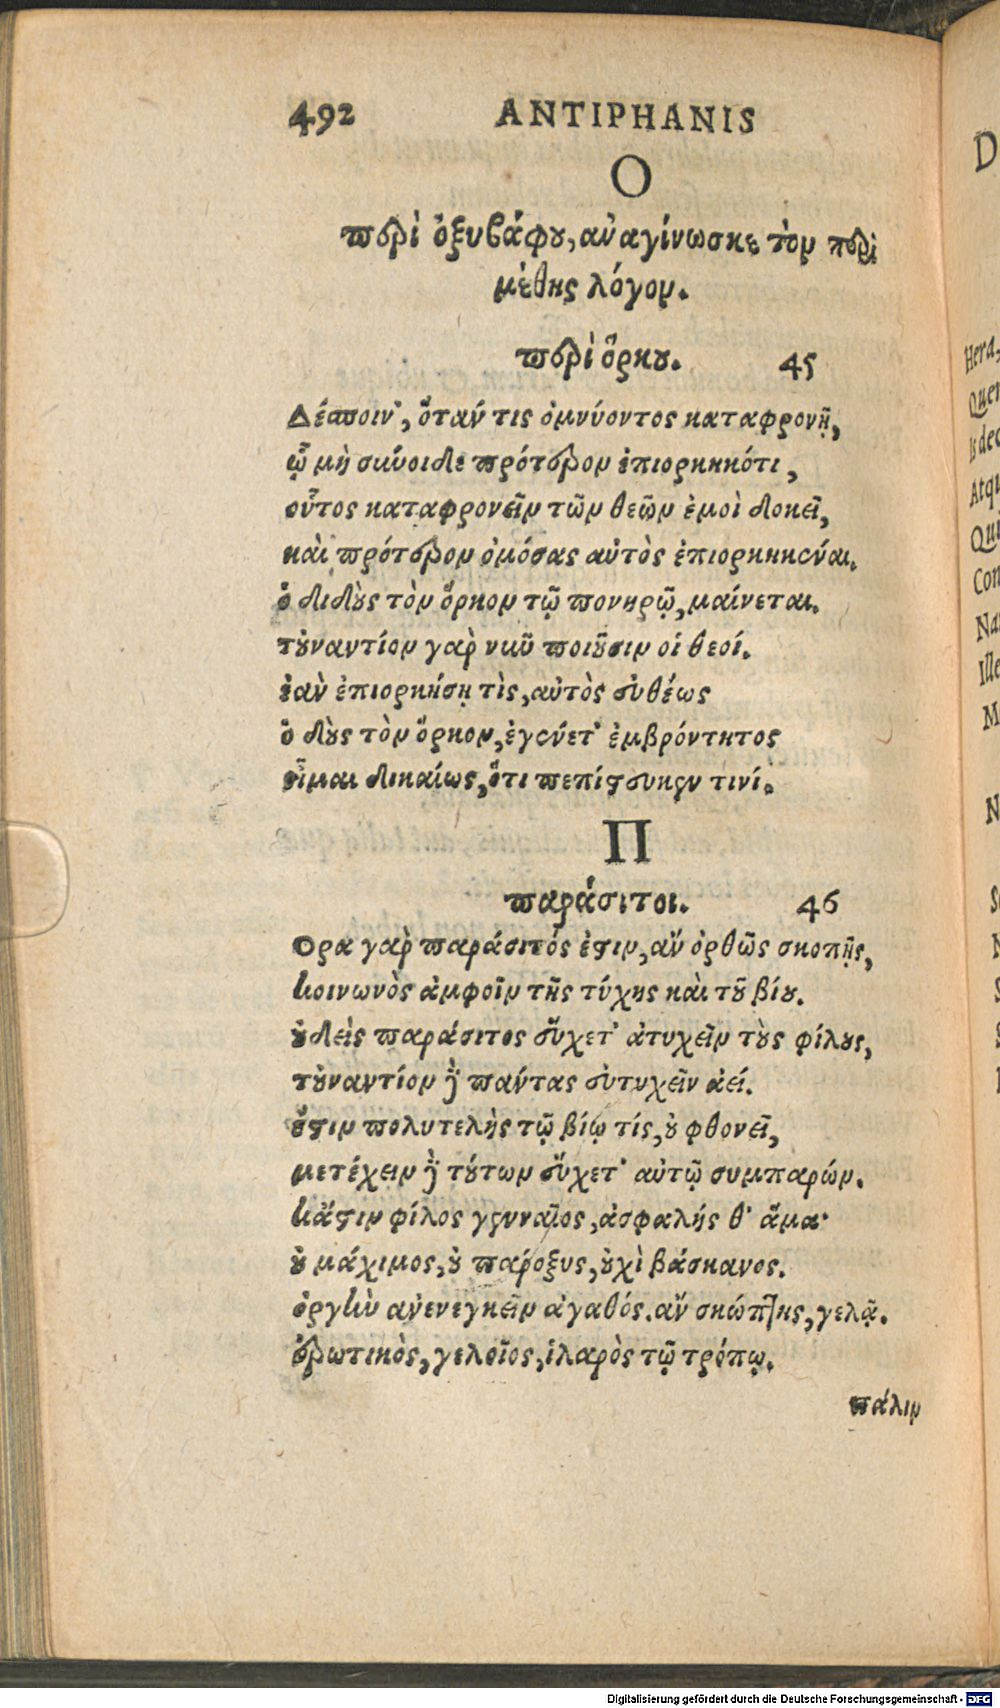 492 ANTIPHANIS
Ο
περὶ ὀξυβάφου, ἀναγίνωσκε τὸν περὶ
μέθης λόγον.
περὶ ὅρκου. 45
Δέσποιν᾽, ὅταν τις ὀμνύοντος καταφρονῇ,
ᾧ μὴ σύνοιδε πρότερον ἐπιορκηκότι,
οὗτος καταφρονεῖν τῶν θεῶν ἐμοὶ δοκεῖ,
καὶ πρότερον ὀμόσας αὐτὸς ἐπιορκηκέναι.
ὁ διδοὺς τὸν ὅρκον τῷ πονηρῷ, μαίνεται.
τοὐναντίον γὰρ νῦν ποιοῦσιν οἱ θεοί.
ἐὰν ἐπιορκήσῃ τὶς, αὐτὸς εὐθέως
ὁ δοὺς τὸν ὅρκον, ἐγένετ᾽ ἐμβρόντητος
οἶμαι δικαίως, ὅτι πεπίστευκέν τινί.
Π
παράσιτοι. 46
Ορα γὰρ παράσιτός ἐστιν, ἂν ὀρθῶς σκοπῇς,
κοινωνὸς ἀμφοῖν τῆς τύχης καὶ τοῦ βίου.
οὐδεὶς παράσιτος εὔχετ᾽ ἀτυχεῖν τοὺς φίλους,
τοὐναντίον δὲ πάντας εὐτυχεῖν ἀεί.
ἔστιν πολυτελὴς τῷ βίῳ τίς, οὐ φθονεῖ,
μετέχειν δὲ τούτων εὔχετ᾽ αὐτῷ συμπαρών.
κἄστιν φίλος γενναῖος, ἀσφαλής θ᾽ ἅμα·
οὐ μάχιμος, οὐ πάροξυς, οὐχὶ βάσκανος.
ὀργὴν ἀνενεγκεῖν ἀγαθός. ἂν σκώπτῃς, γελᾷ.
ἐρωτικὸς, γελοῖος, ἱλαρὸς τῷ τρόπῳ.
πάλιν
D
Hera,
Quer
Is dec
Atqu
Qui
Con
Na
Ille
M
N
Digitalisierung gefördert durch die Deutsche Forschungsgemeinschaft - DFG